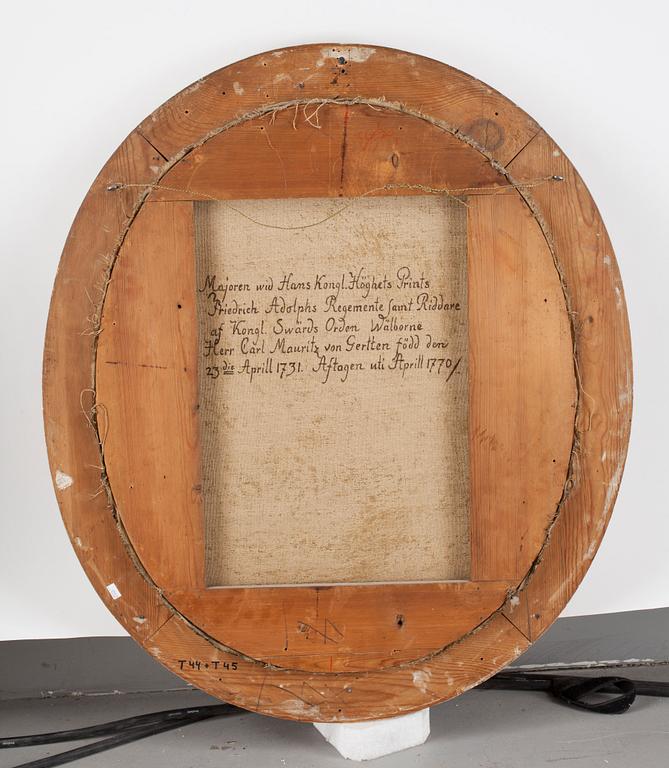 Majoren wid Hans Kongl. Höghets Prints
Friedrich Adolphs Regemente samt Riddare
af Kongl. Swärds Orden Wälborne
Herr Carl Mauritz von Gertten född den
23 die Aprill 1731. Aftagen uti Aprill 1770/.
T44+T45